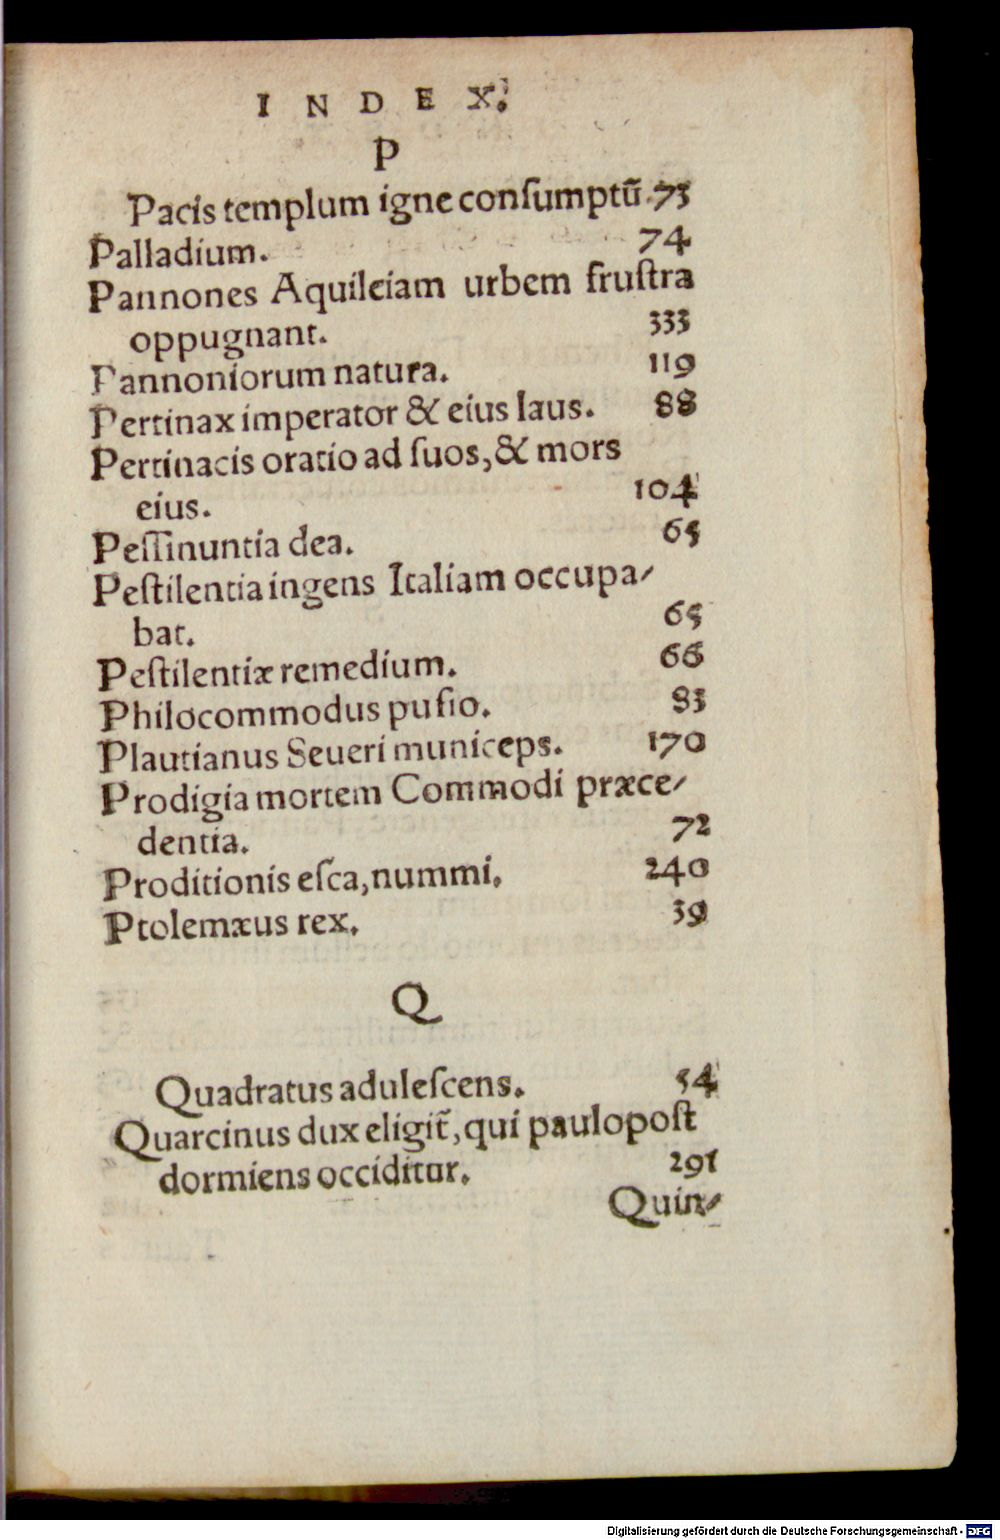 INDEX.
P
Pacis templum igne conſumptũ. 73
Palladium. 74
Pannones Aquileiam urbem fruſtra
oppugnant. 333
Pannoniorum natura. 119
Pertinax imperator & eius laus. 88
Pertinacis oratio ad ſuos, & mors
eius. 104
Peſſinuntia dea. 65
Peſtilentia ingens Italiam occupa-
bat. 65
Peſtilentiæ remedium. 66
Philocommodus puſio. 83
Plautianus Seueri municeps. 170
Prodigia mortem Commodi præce-
dentia. 72
Proditionis eſca, nummi. 240
Ptolemæus rex. 39
Q
Quadratus aduleſcens. 54
Quarcinus dux eligit̃, qui paulopoſt
dormiens occiditur. 291
Quin-
Digitalisierung gefördert durch die Deutsche Forschungsgemeinschaft - DFG